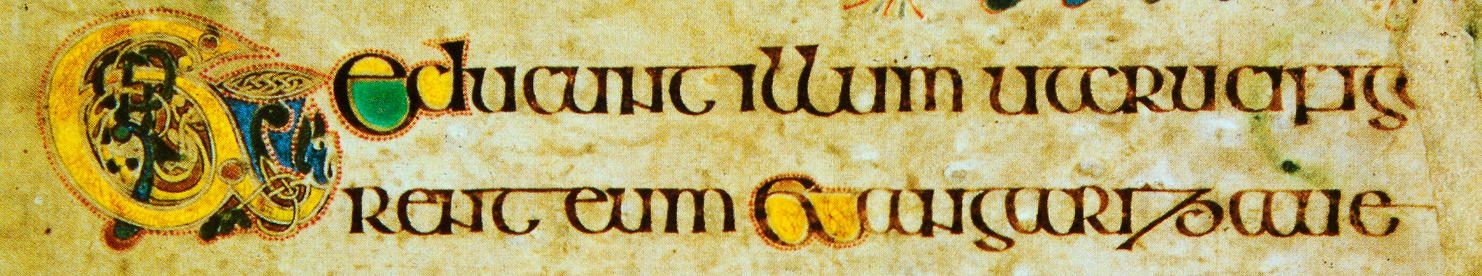 Et educunt illum ut crucifig
rent eum & angarizaue